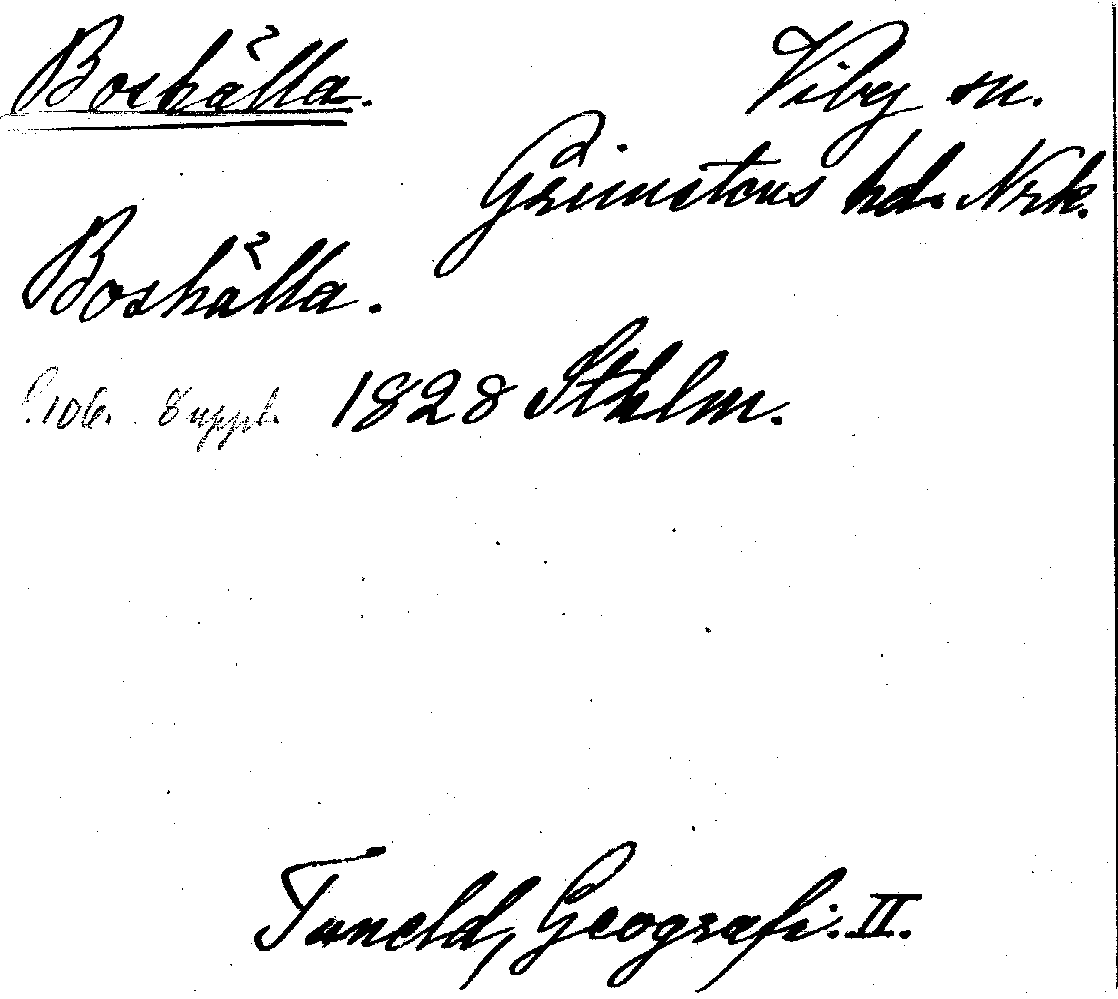 Boshålla. Viby sn.
Grimstens hd. Nrk.
Boshålla.
S. 106. Suppl. 1828 Sthlm.
Tuneld, Geografi. II.